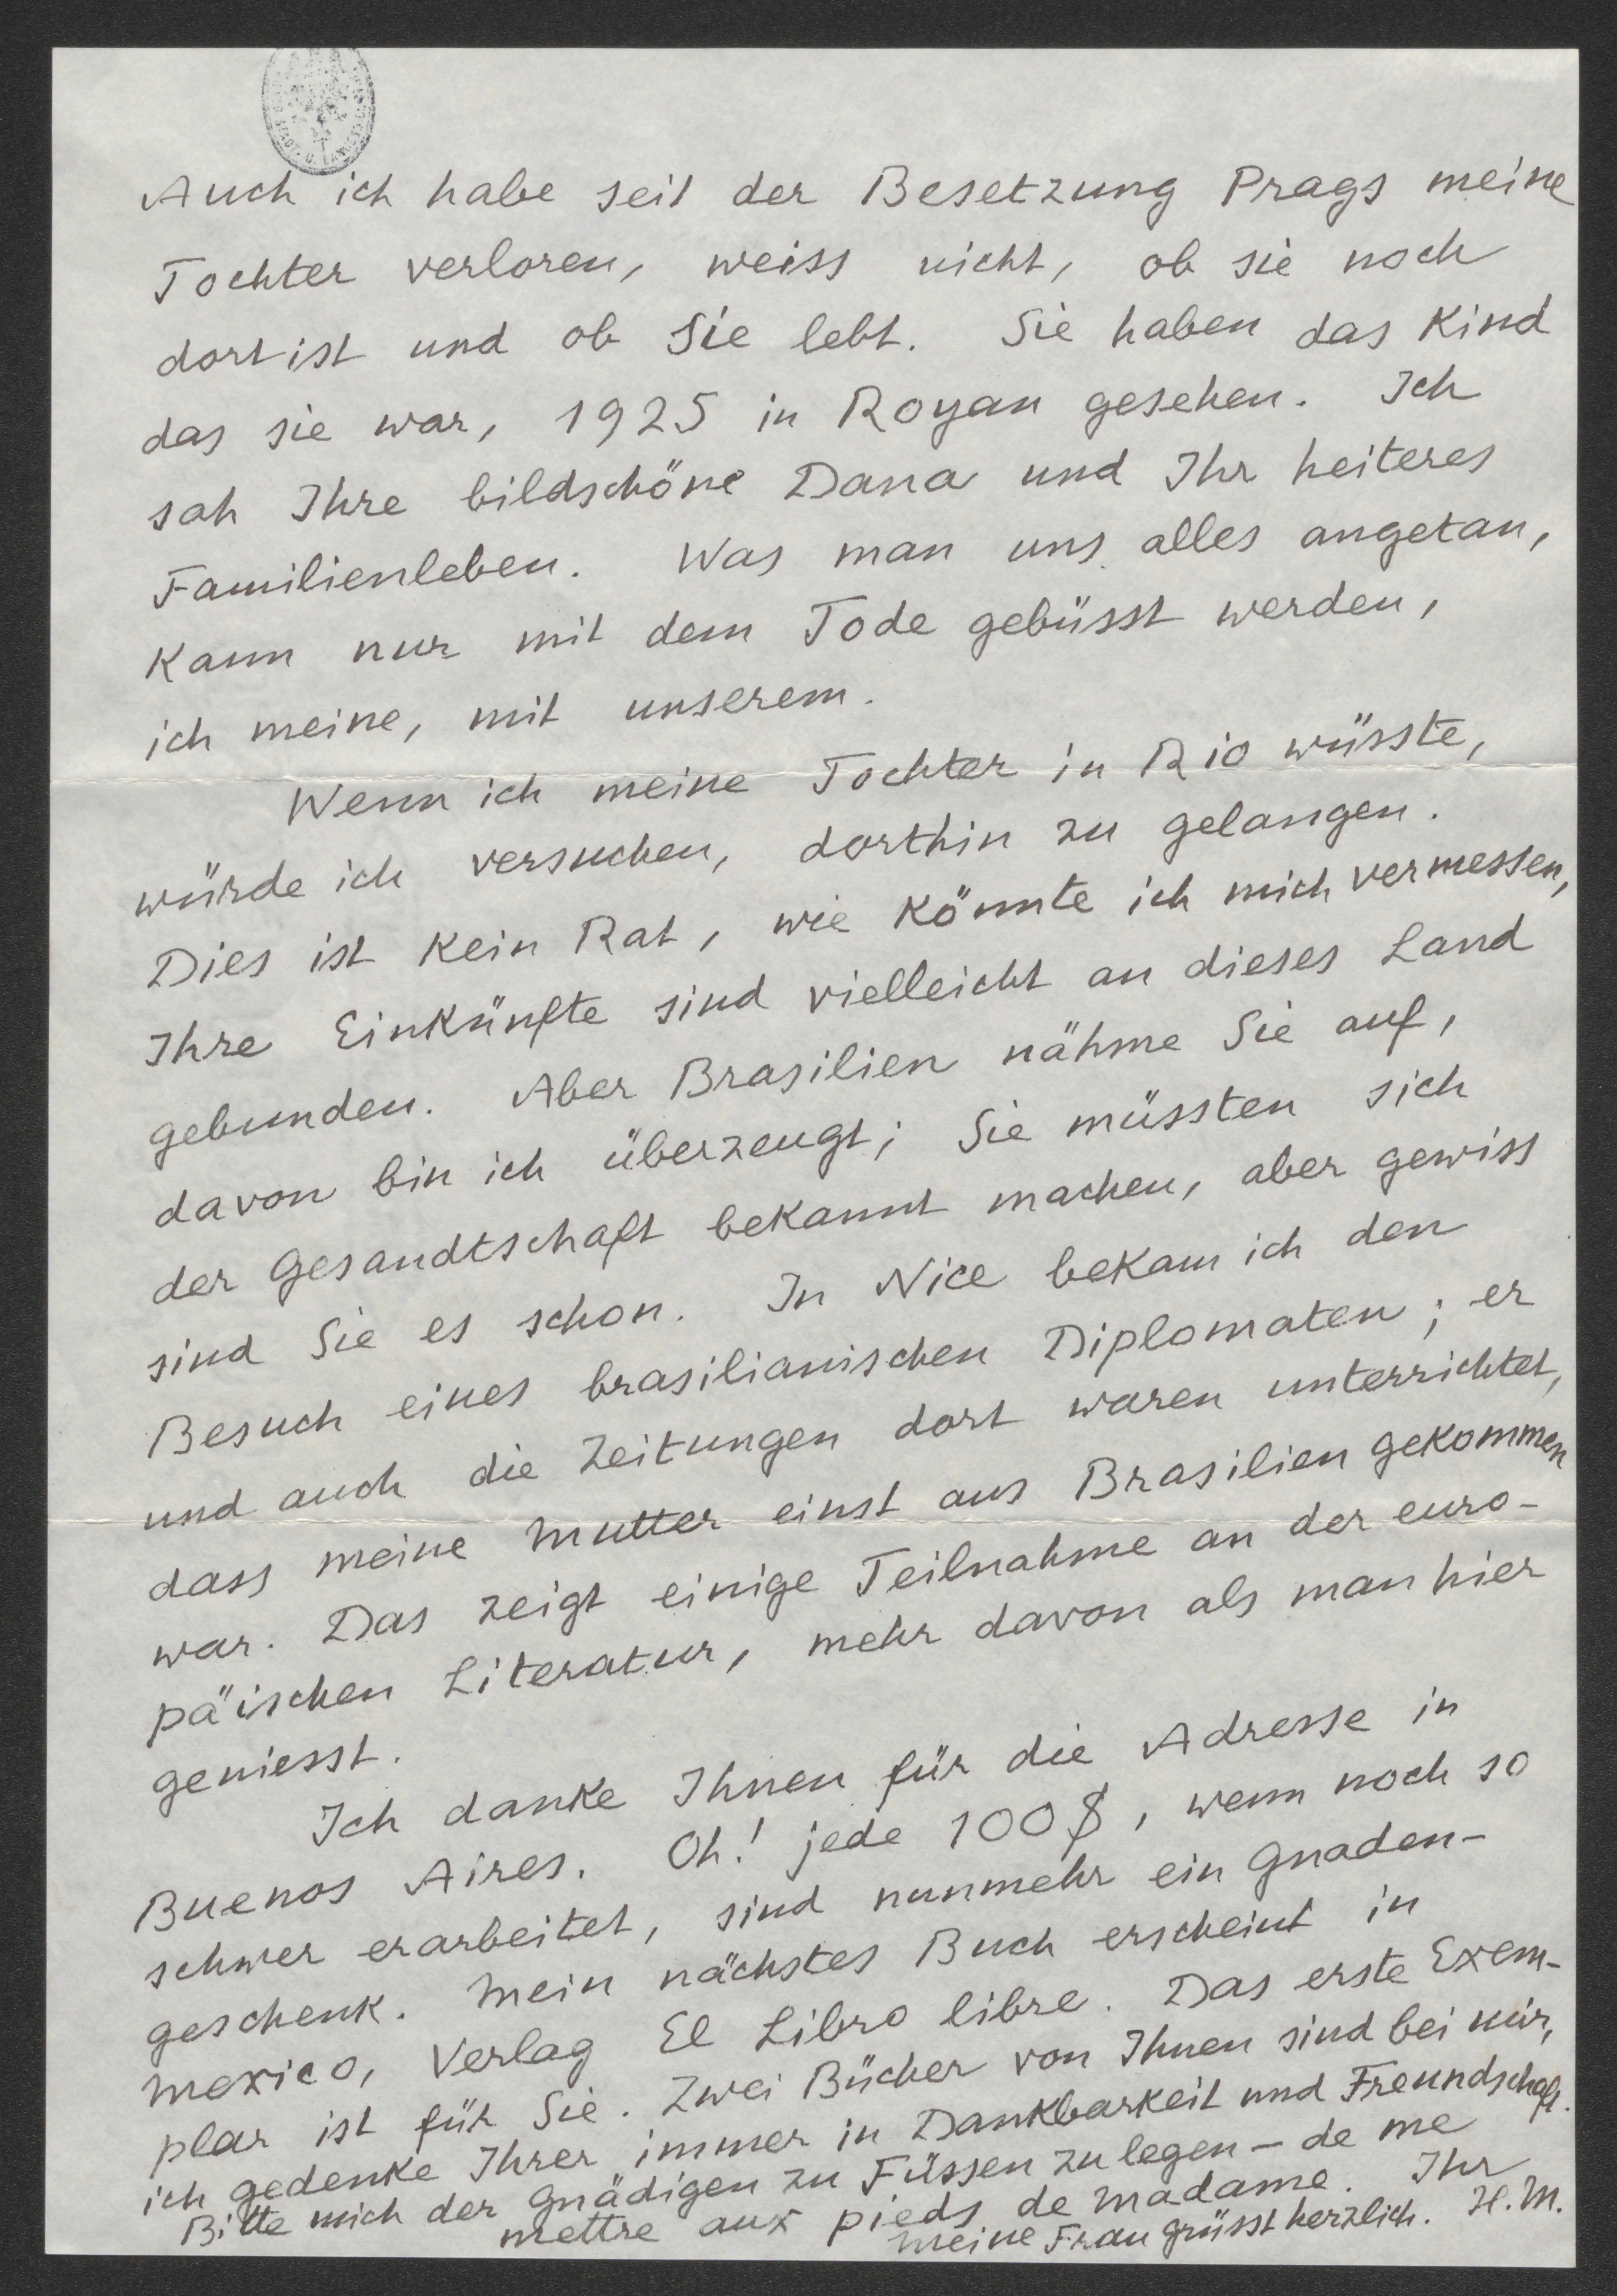 Auch ich habe seit der Besetzung Prags meine
Tochter verloren, weiss nicht, ob sie noch
dort ist und ob sie lebt. Sie haben das Kind
das sie war, 1925 in Royan gesehen. Ich
sah Ihre bildschöne Dana und Ihr heiteres
Familienleben. Was man uns alles angetan,
kann nur mit dem Tode gebüsst werden,
ich meine, mit unserem.
Wenn ich meine Tochter in Rio wüsste,
würde ich versuchen, dorthin zu gelangen.
Dies ist kein Rat, wie könnte ich mich vermessen,
Ihre Einkünfte sind vielleicht an dieses Land
gebunden. Aber Brasilien nähme Sie auf,
davon bin ich überzeugt; Sie müssten sich
der Gesandtschaft bekannt machen, aber gewiss
sind Sie es schon. In Nice bekam ich den
Besuch eines brasilianischen Diplomaten; er
und auch die Zeitungen dort waren unterrichtet,
dass meine Mutter einst aus Brasilien gekommen
war. Das zeigt einige Teilnahme an der euro-
päischen Literatur, mehr davon als man hier
geniesst.
Ich danke Ihnen für die Adresse in
Buenos Aires. Oh! jede 100$, wenn noch so
schwer erarbeitet, sind nunmehr ein Gnaden-
geschenk. Mein nächstes Buch erscheint in
Mexico, Verlag El Libro libre. Das erste Exem-
plar ist für Sie. Zwei Bücher von Ihnen sind bei mir,
ich gedenke Ihrer immer in Dankbarkeit und Freundschaft.
Bitte mich der Gnädigen zu Füssen zu legen – de me
mettre aux pieds de Madame. Ihr
Meine Frau grüsst herzlich. H.M.